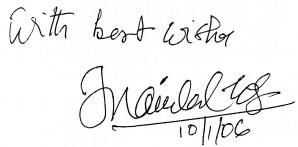 With best wishes
10/1/06